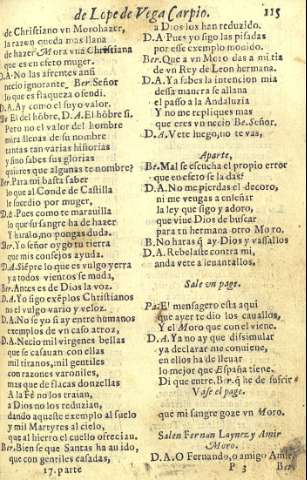 de Lope de Vega Carpio. 115
de Christiano vn Morohazer,
la razon queda mas llana
de hazer Mora vna Christiana
que es en efeto muger.
D.A. No las afrentes ansi
necio ignorante, Ber. Señor
lo que es flaqueza ofendi.
D.A. Ay como el suyo valor.
Br El del hõbre, D.A. El hõbre si.
Pero no el valor del hombre
mira llenas de su nombre
tintas tan varias historias
y sino sabes sus glorias
quieres que algunas te nombre?
Ber. Para mi basta saber
lo que al Conde de Castilla
le sucedio por muger,
D.A. Pues como te marauilla
lo que su sangre ha de hazer
Y huralo, no pongas duda.
Ber. Yo señor oy gõ tu tierra
que mis consejos ayuda.
D.A. Siẽpre lo que es vulgo yerra
y a todos vientos se muda,
Ber. Antes es de Dios la voz.
D.A. Yo sigo exẽplos Christianos
no el vulgo vario y veloz.
D.A. No se yo si ay entre humanos
exemplos de vn caso atroz,
D.A. Necio mil virgenes bellas
que se casauan con ellas
mil tiranos, mil gentiles
con razones varoniles,
mas que de flacas donzellas
A la Fè no los traian,
a Dios no los reduzian,
dando aqueste exemplo al suelo
y mil Martyres al cielo,
que al hierro el cuello ofrecian.
Ber. Bien se que Santas ha auido,
que con gentiles casadas,
17. parte
a Dios los han reduzido.
D.A Pues yo sigo las pisadas
por esse exemplo mouido.
Ber. Que a vn Moro das a mi tia
de vn Rey de Leon hermana.
D.A. Ya sabes la intencion mia
dessa manera se allana
el passo a la Andaluzia
Y no me repliques mas
que eres vn necio Ber. Señor.
D.A. Vete luego, no te vas,
Aparte,
Ber. Mal se escucha el propio error
que en efeto se la das?
D.A. No me pierdas el decoro,
ni me vengas a enseñar
la ley que sigo y adoro,
que viue Dios de buscar
para tu hermana otro Moro.
B. No haras q̃ ay Dios y vassallos
D.A. Rebelaste contra mi,
anda vete a leuantallos.
Sale vn page.
Pa: El mensagero esta aqui
que ayer te dio los cauallos,
Y el Moro que con el viene.
D.A. Ya no ay que dissimular
ya declarar me conuiene,
en ellos ha de lleuar
lo mejor que España tiene.
Di que entre. Ber. q̃ he de sufrir?
Vase el page.
que mi sangre goze vn Moro.
Salen Fernan Laynez y Amir
Moro.
D.A. O Fernando, o amigo Amir,
P 3 Ber.